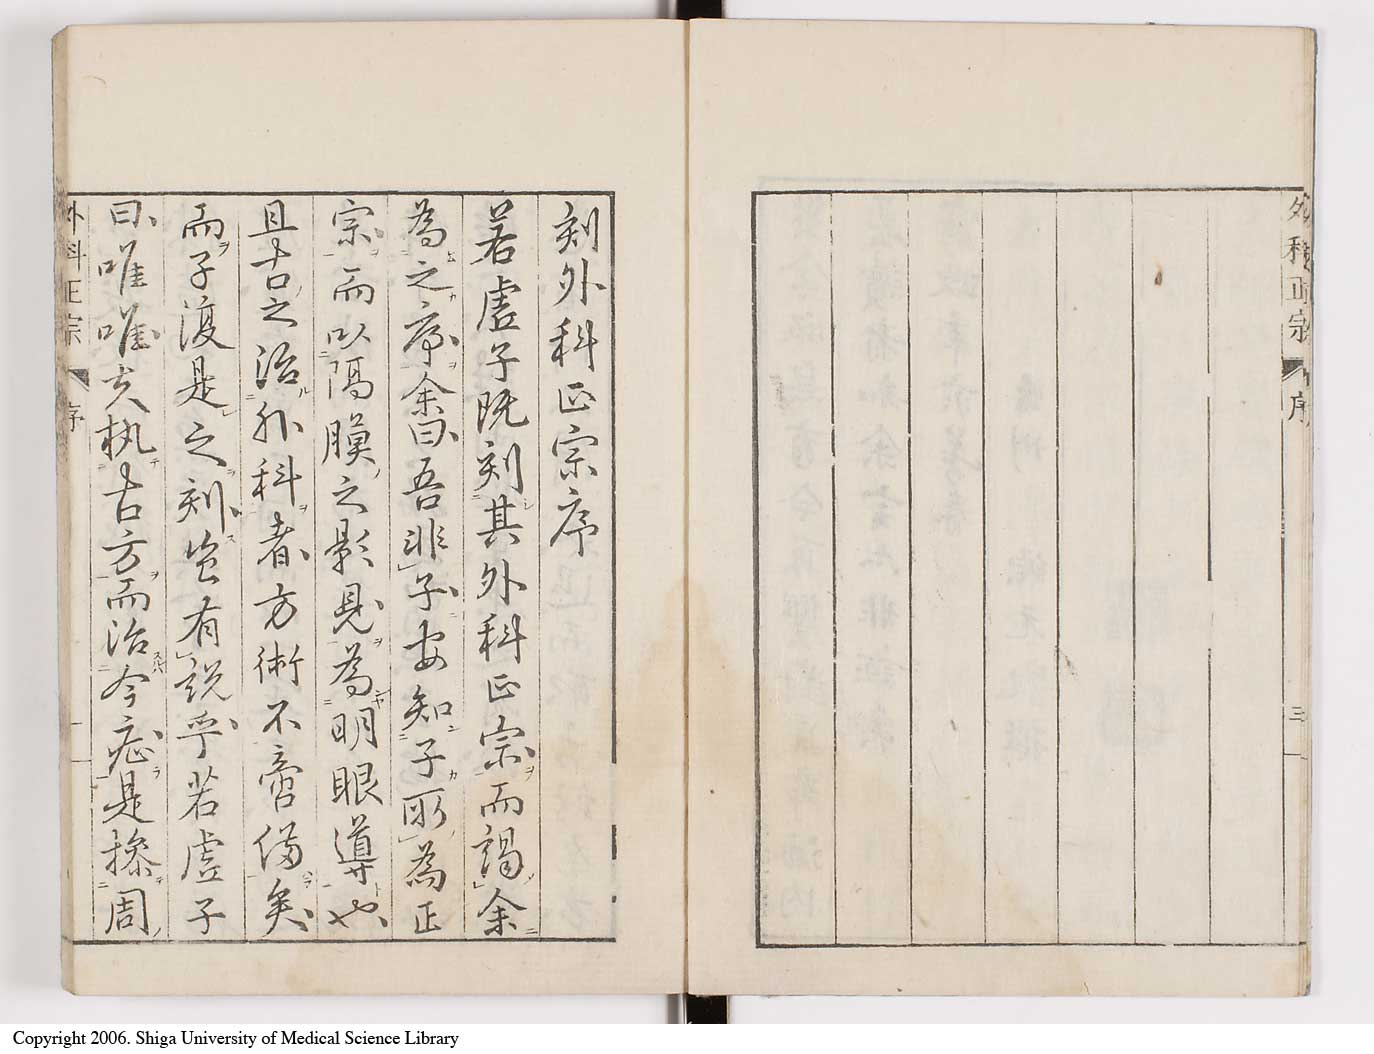 外科正宗
序
三
刻外科正宗序
若虚子既刻其外科正宗而謁余
為之序余曰吾非子安知子所為正
宗而以隔膜之影見為明眼導也
且古之治外科者方術不啻備矣
而子復是之刻豈有説乎若虚子
曰唯唯夫執古方而治今症是操周
外科正宗
序
一
Copyright 2006. Shiga University of Medical Science Library